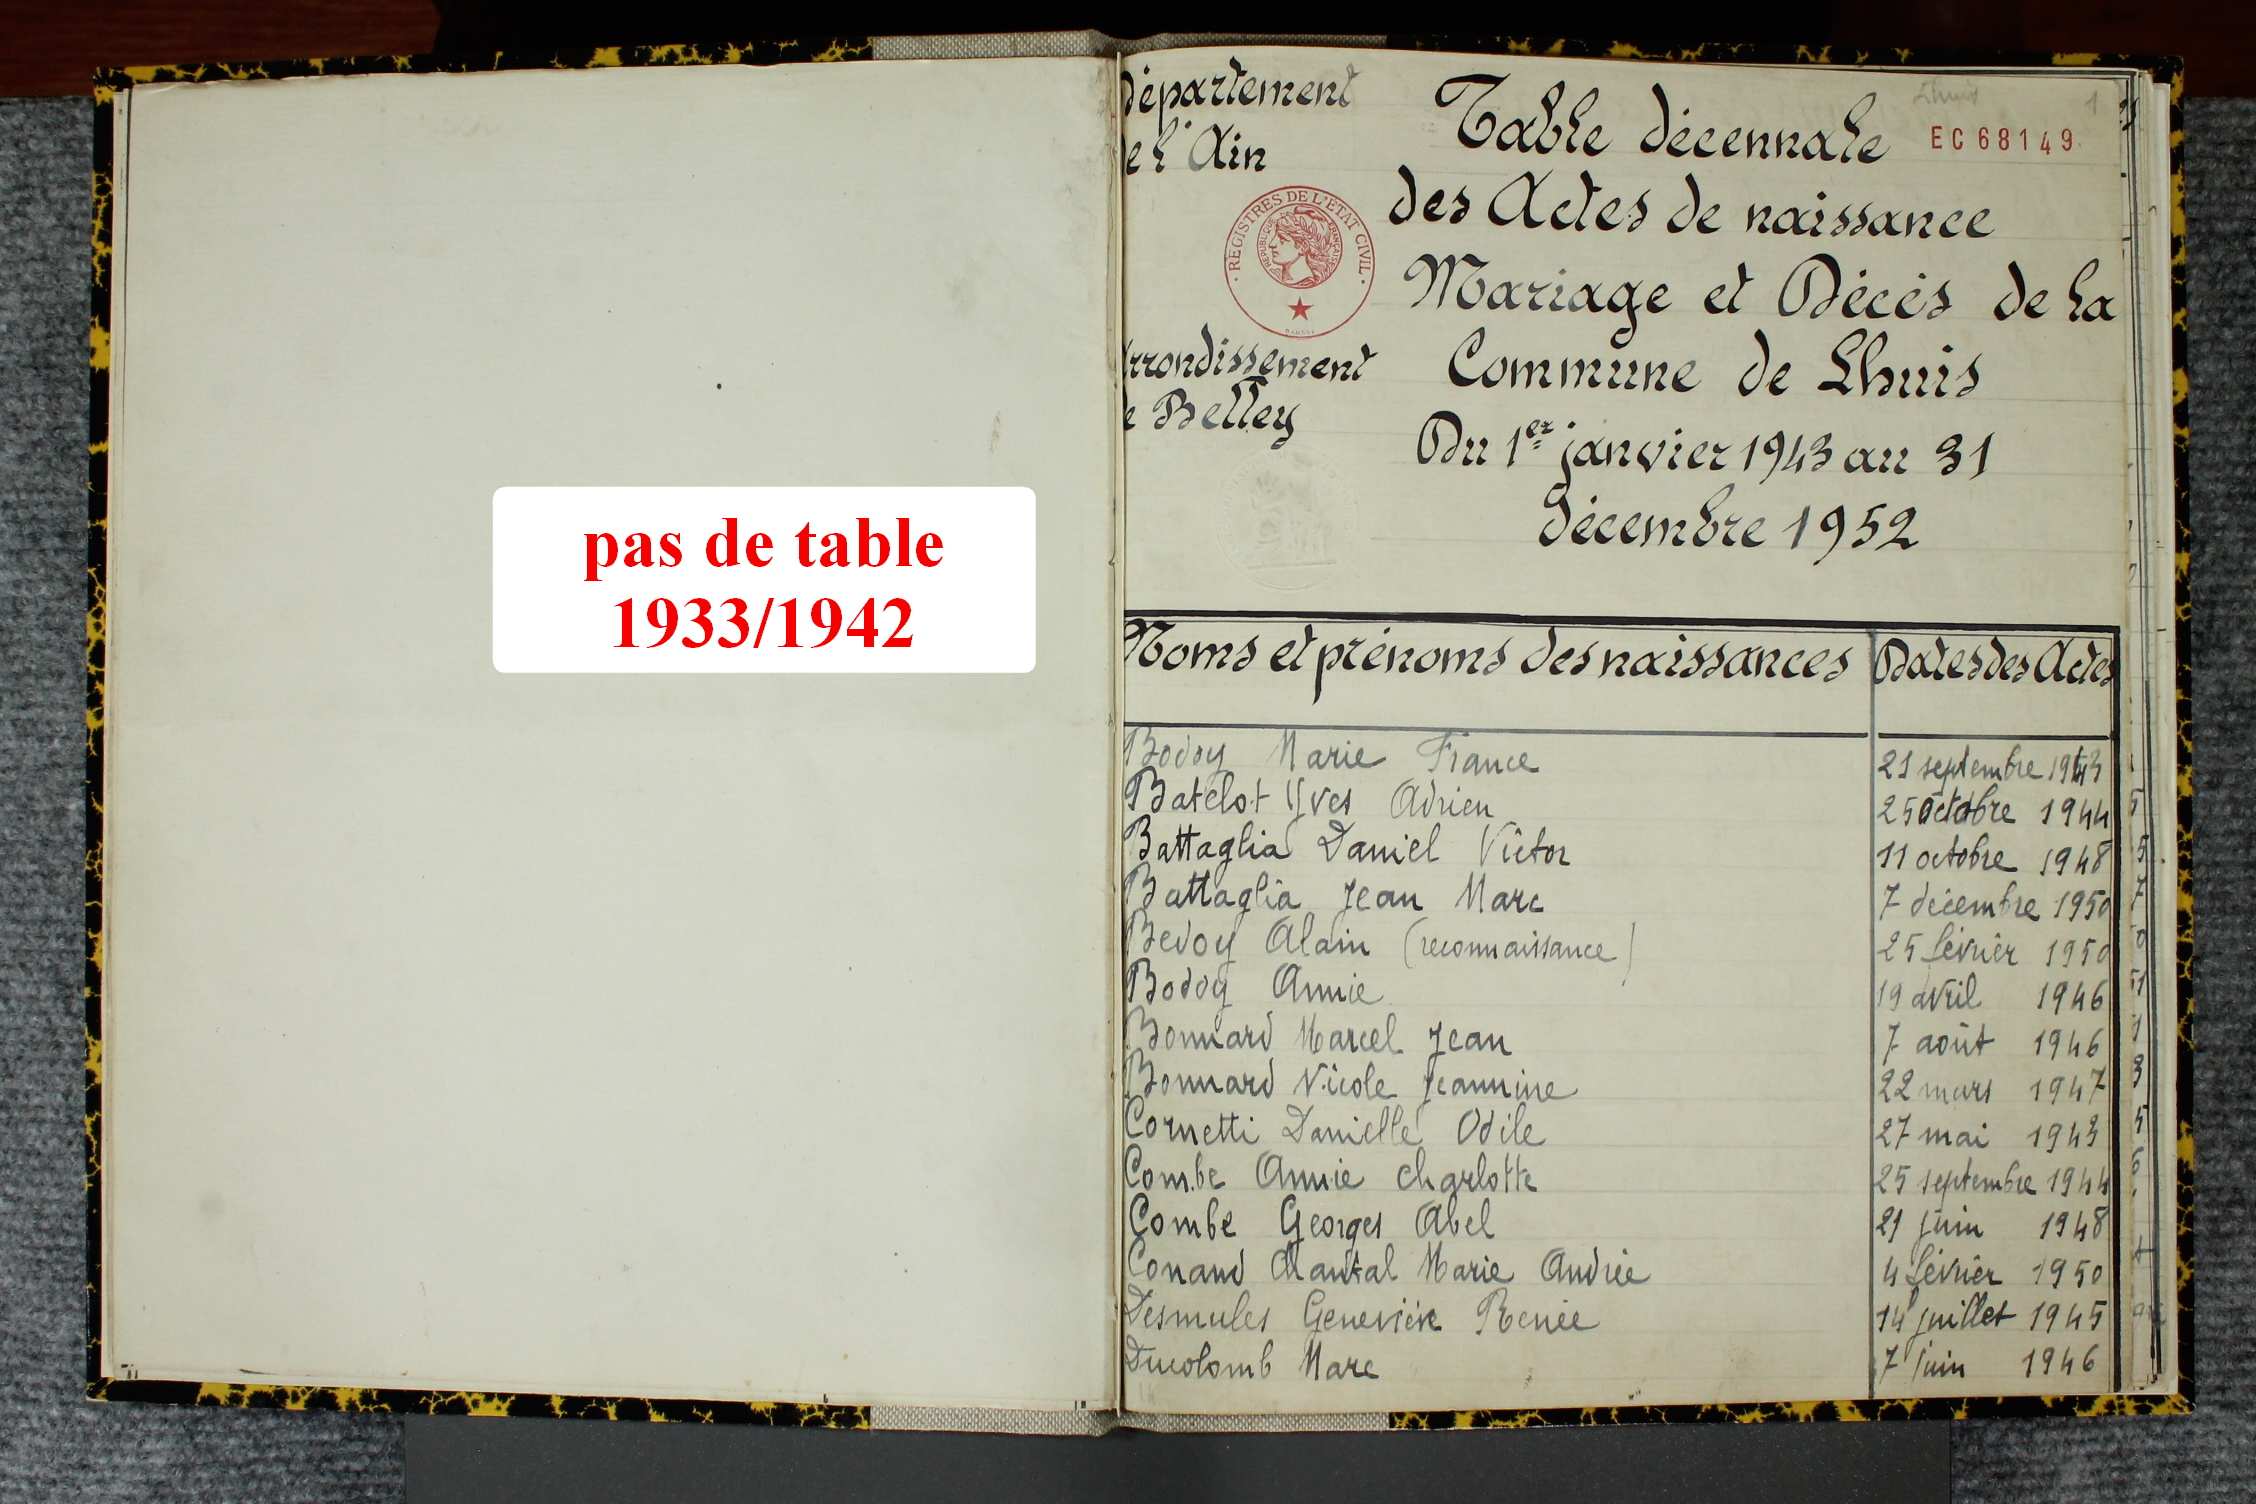 pas de table
1933/1942
Département
de l'Ain
REGISTRES DE L'ETAT CIVIL
REPUBLIQUE FRANÇAISE
Arrondissement
de Belley
Lhuis
1
Table décennale
EC 68149
des Actes de naissance
Mariage et Décès de la
Commune de Lhuis
Du 1er janvier 1943 au 31
décembre 1952
Noms et prénoms des naissances Dates des Actes
Bodoy Marie France 21 septembre 1943
Batelot Yves Adrien 25 octobre 1944
Battaglia Daniel Victor 11 octobre 1948
Battaglia Jean Marc 7 décembre 1950
Bedoy Alain (reconnaissance) 25 février 1950
Bodoy Annie 19 avril 1946
Bonnard Marcel Jean 7 août 1946
Bonnard Nicole Jeannine 22 mars 1947
Cornetti Danielle Odile 27 mai 1943
Combe Annie Charlotte 25 septembre 1944
Combe Georges Abel 21 juin 1948
Conand Chantal Marie Andrée 4 février 1950
Desmules Geneviève Renée 14 juillet 1945
Ducolomb Marc 7 juin 1946